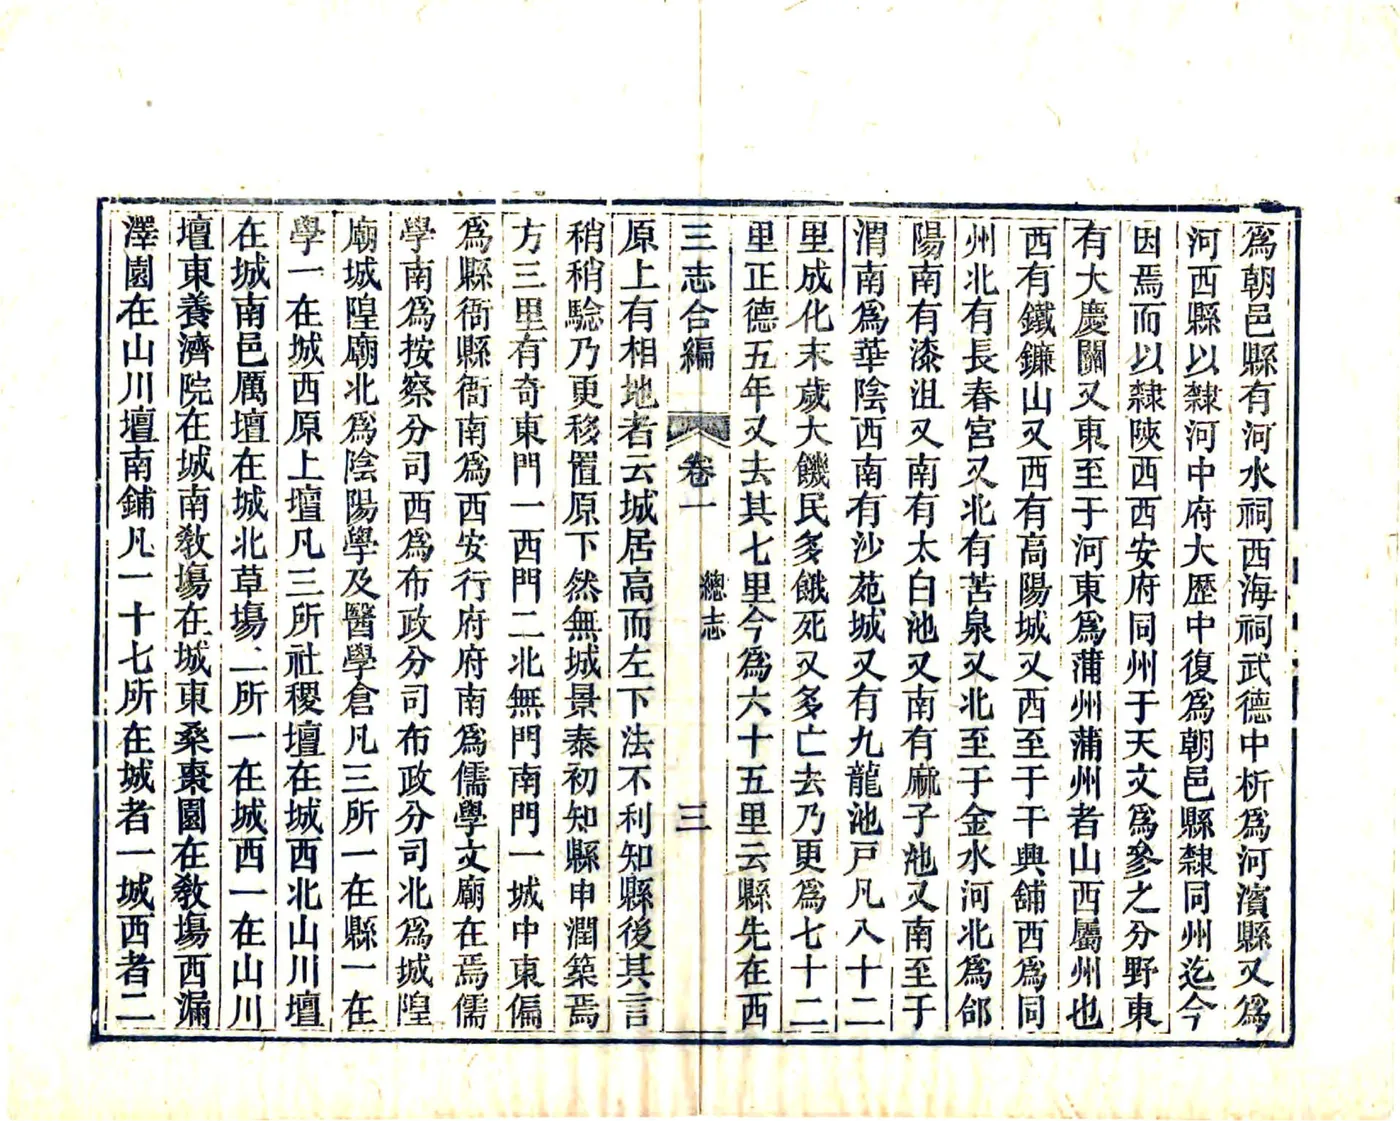 爲朝邑縣有河水祠西海祠武德中析爲河濱縣又爲
河西縣以隸河中府大歷中復爲朝邑縣隸同州迄今
因焉而以隸陝西西安府同州于天文爲參之分野東
有大慶關又東至于河東爲蒲州蒲州者山西屬州也
西有鐵鐮山又西有高陽城又西至于干興舖西爲同
州北有長春宮又北有苦泉又北至于金水河北爲郃
陽南有漆沮又南有太白池又南有麻子池又南至于
渭南爲華陰西南有沙苑城又有九龍池戸凡八十二
里成化末歲大饑民多餓死又多亡去乃更爲七十二
里正德五年又去其七里今爲六十五里云縣先在西
三志合編
卷一
總志
三
原上有相地者云城居高而左下法不利知縣後其言
稍稍驗乃更移置原下然無城景泰初知縣申潤築焉
方三里有奇東門一西門二北無門南門一城中東偏
爲縣衙縣衙南爲西安行府府南爲儒學文廟在焉儒
學南爲按察分司西爲布政分司布政分司北爲城隍
廟城隍廟北爲陰陽學及醫學倉凡三所一在縣一在
學一在城西原上壇凡三所社稷壇在城西北山川壇
在城南邑厲壇在城北草塲二所一在城西一在山川
壇東養濟院在城南敎塲在城東桑棗園在敎塲西漏
澤園在山川壇南鋪凡一十七所在城者一城西者二